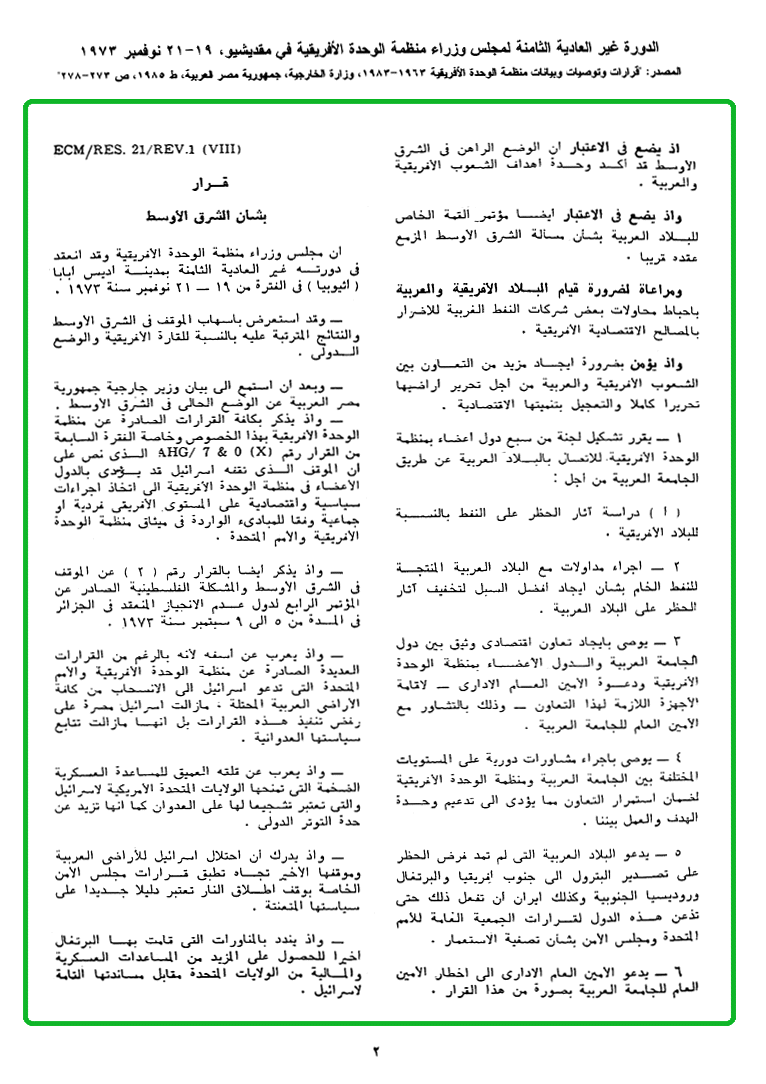 الدورة غير العادية الثامنة لمجلس وزراء منظمة الوحدة الأفريقية في مقديشيو، ١٩-٢١ نوفمبر ١٩٧٣
المصدر: "قرارات وتوصيات وبيانات منظمة الوحدة الأفريقية ١٩٦٣-١٩٨٣، وزارة الخارجية، جمهورية مصر العربية، ط ١٩٨٥، ص ٢٧٣-٢٧٨"
ECM/RES. 21/REV.1 (VIII)
قـــرار
بشأن الشرق الأوسط
ان مجلس وزراء منظمة الوحدة الأفريقية وقد انعقد
فى دورتـــه غير العادية الثامنة بمدينـــة اديس ابابا
( اثيوبيا ) فى الفترة من ١٩ — ٢١ نوفمبر سنة ١٩٧٣ .
— وقد استعرض باسهاب الموقف فى الشرق الأوسط
والنتائج المترتبة عليه بالنسبة للقارة الأفريقية والوضع
الـــدولى .
— وبعد ان استمع الى بيان وزير خارجية جمهورية
مصر العربية عن الوضع الحالى فى الشرق الأوسط .
— واذ يذكر بكافة القرارات الصادرة عن منظمة
الوحدة الأفريقية بهذا الخصوص وخاصة الفقرة السابعة
من القرار رقم AHG/ 7 & 0 (X) الـــذى نص على
ان الموقف الـــذى تقفه اسرائيل قد يـــؤدى بالدول
الأعضاء فى منظمة الوحدة الأفريقية الى اتخاذ اجراءات
سياسية واقتصادية على المستوى الأفريقى فردية او
جماعية وفقا للمبادىء الواردة فى ميثاق منظمة الوحدة
الأفريقية والأمم المتحدة .
— واذ يذكر ايضا بالقرار رقم ( ٢ ) عن الموقف
فى الشرق الأوسط والمشكلة الفلسطينية الصادر عن
المؤتمر الرابع لدول عـــدم الانحياز المنعقد فى الجزائر
فى المـــدة من ٥ الى ٩ سبتمبر سنة ١٩٧٣ .
— واذ يعرب عن أسفه لأنه بالرغم من القرارات
العديدة الصادرة عن منظمة الوحدة الأفريقية والأمم
المتحدة التى تدعو اسرائيل الى الانسحاب من كافة
الأراضى العربية المحتلة ، مازالت اسرائيل مصرة على
رفض تنفيذ هـــذه القرارات بل انهـــا مازالت تتابع
سياستها العدوانية .
— واذ يعرب عن قلقه العميق للمساعدة العسكرية
الضخمة التى تمنحها الولايات المتحدة الأمريكية لاسرائيل
والتى تعتبر تشجيعا لها على العدوان كما انها تزيد عن
حدة التوتر الدولى .
— واذ يدرك ان احتلال اسرائيل للأراضى العربية
وموقفها الأخير تجـــاه تطبق قـــرارات مجلس الأمن
الخاصة بوقف اطـــلاق النار تعتبر دليلا جـــديدا على
سياستها المتعنتة .
— واذ يندد بالمناورات التى قامت بهـــا البرتغال
اخيرا للحصول على المزيد من المساعدات العسكرية
والمـــالية من الولايات المتحدة مقابل مساندتها التامة
لاسرائيل .
اذ يضع فى الاعتبار ان الوضع الراهن فى الشرق
الأوسط قد أكـــد وحـــدة اهداف الشعوب الأفريقية
والعربية .
واذ يضع فى الاعتبار ايضـــا مؤتمر القمة الخاص
للبـــلاد العربية بشأن مسألة الشرق الأوسط المزمع
عقده قريبا .
ومراعاة لضرورة قيام البـــلاد الأفريقية والعربية
باحباط محاولات بعض شركات النفط الغربية للاضرار
بالمصالح الاقتصادية الأفريقية .
واذ يؤمن بضرورة ايجـــاد مزيد من التعـــاون بين
الشعـــوب الأفريقية والعربية من أجل تحرير اراضيها
تحريرا كاملا والتعجيل بتنميتها الاقتصادية .
١ — يقرر تشكيل لجنة من سبع دول اعضاء بمنظمة
الوحدة الأفريقية للاتصال بالبـــلاد العربية عن طريق
الجامعة العربية من أجل :
( أ ) دراسة آثار الحظر على النفط بالنســـبة
للبلاد الأفريقية .
٢ — اجراء مداولات مع البلاد العربية المنتجـــة
للنفط الخام بشأن ايجاد أفضل السبل لتخفيف آثار
الحظر على البلاد العربية .
٣ — يوصى بايجاد تعاون اقتصادى وثيق بين دول
الجامعة العربية والـــدول الاعضـــاء بمنظمة الوحدة
الأفريقية ودعـــوة الأمين العـــام الادارى — لاقامة
الأجهزة اللازمة لهذا التعاون — وذلك بالتشاور مع
الأمين العام للجامعة العربية .
٤ — يوصى باجراء مشاورات دورية على المستويات
المختلفة بين الجامعة العربية ومنظمة الوحدة الأفريقية
لضمان استمرار التعاون مما يؤدى الى تدعيم وحـــدة
الهدف والعمل بيننا .
٥ — يدعو البلاد العربية التى لم تمد فرض الحظر
على تصـــدير البترول الى جنوب افريقيا والبرتغال
وروديسيا الجنوبية وكذلك ايران ان تفعل ذلك حتى
تذعن هـــذه الدول لقـــرارات الجمعية العامة للأمم
المتحدة ومجلس الأمن بشأن تصفية الاستعمار .
٦ — يدعو الأمين العام الادارى الى اخطار الأمين
العام للجامعة العربية بصورة من هذا القرار .
٢